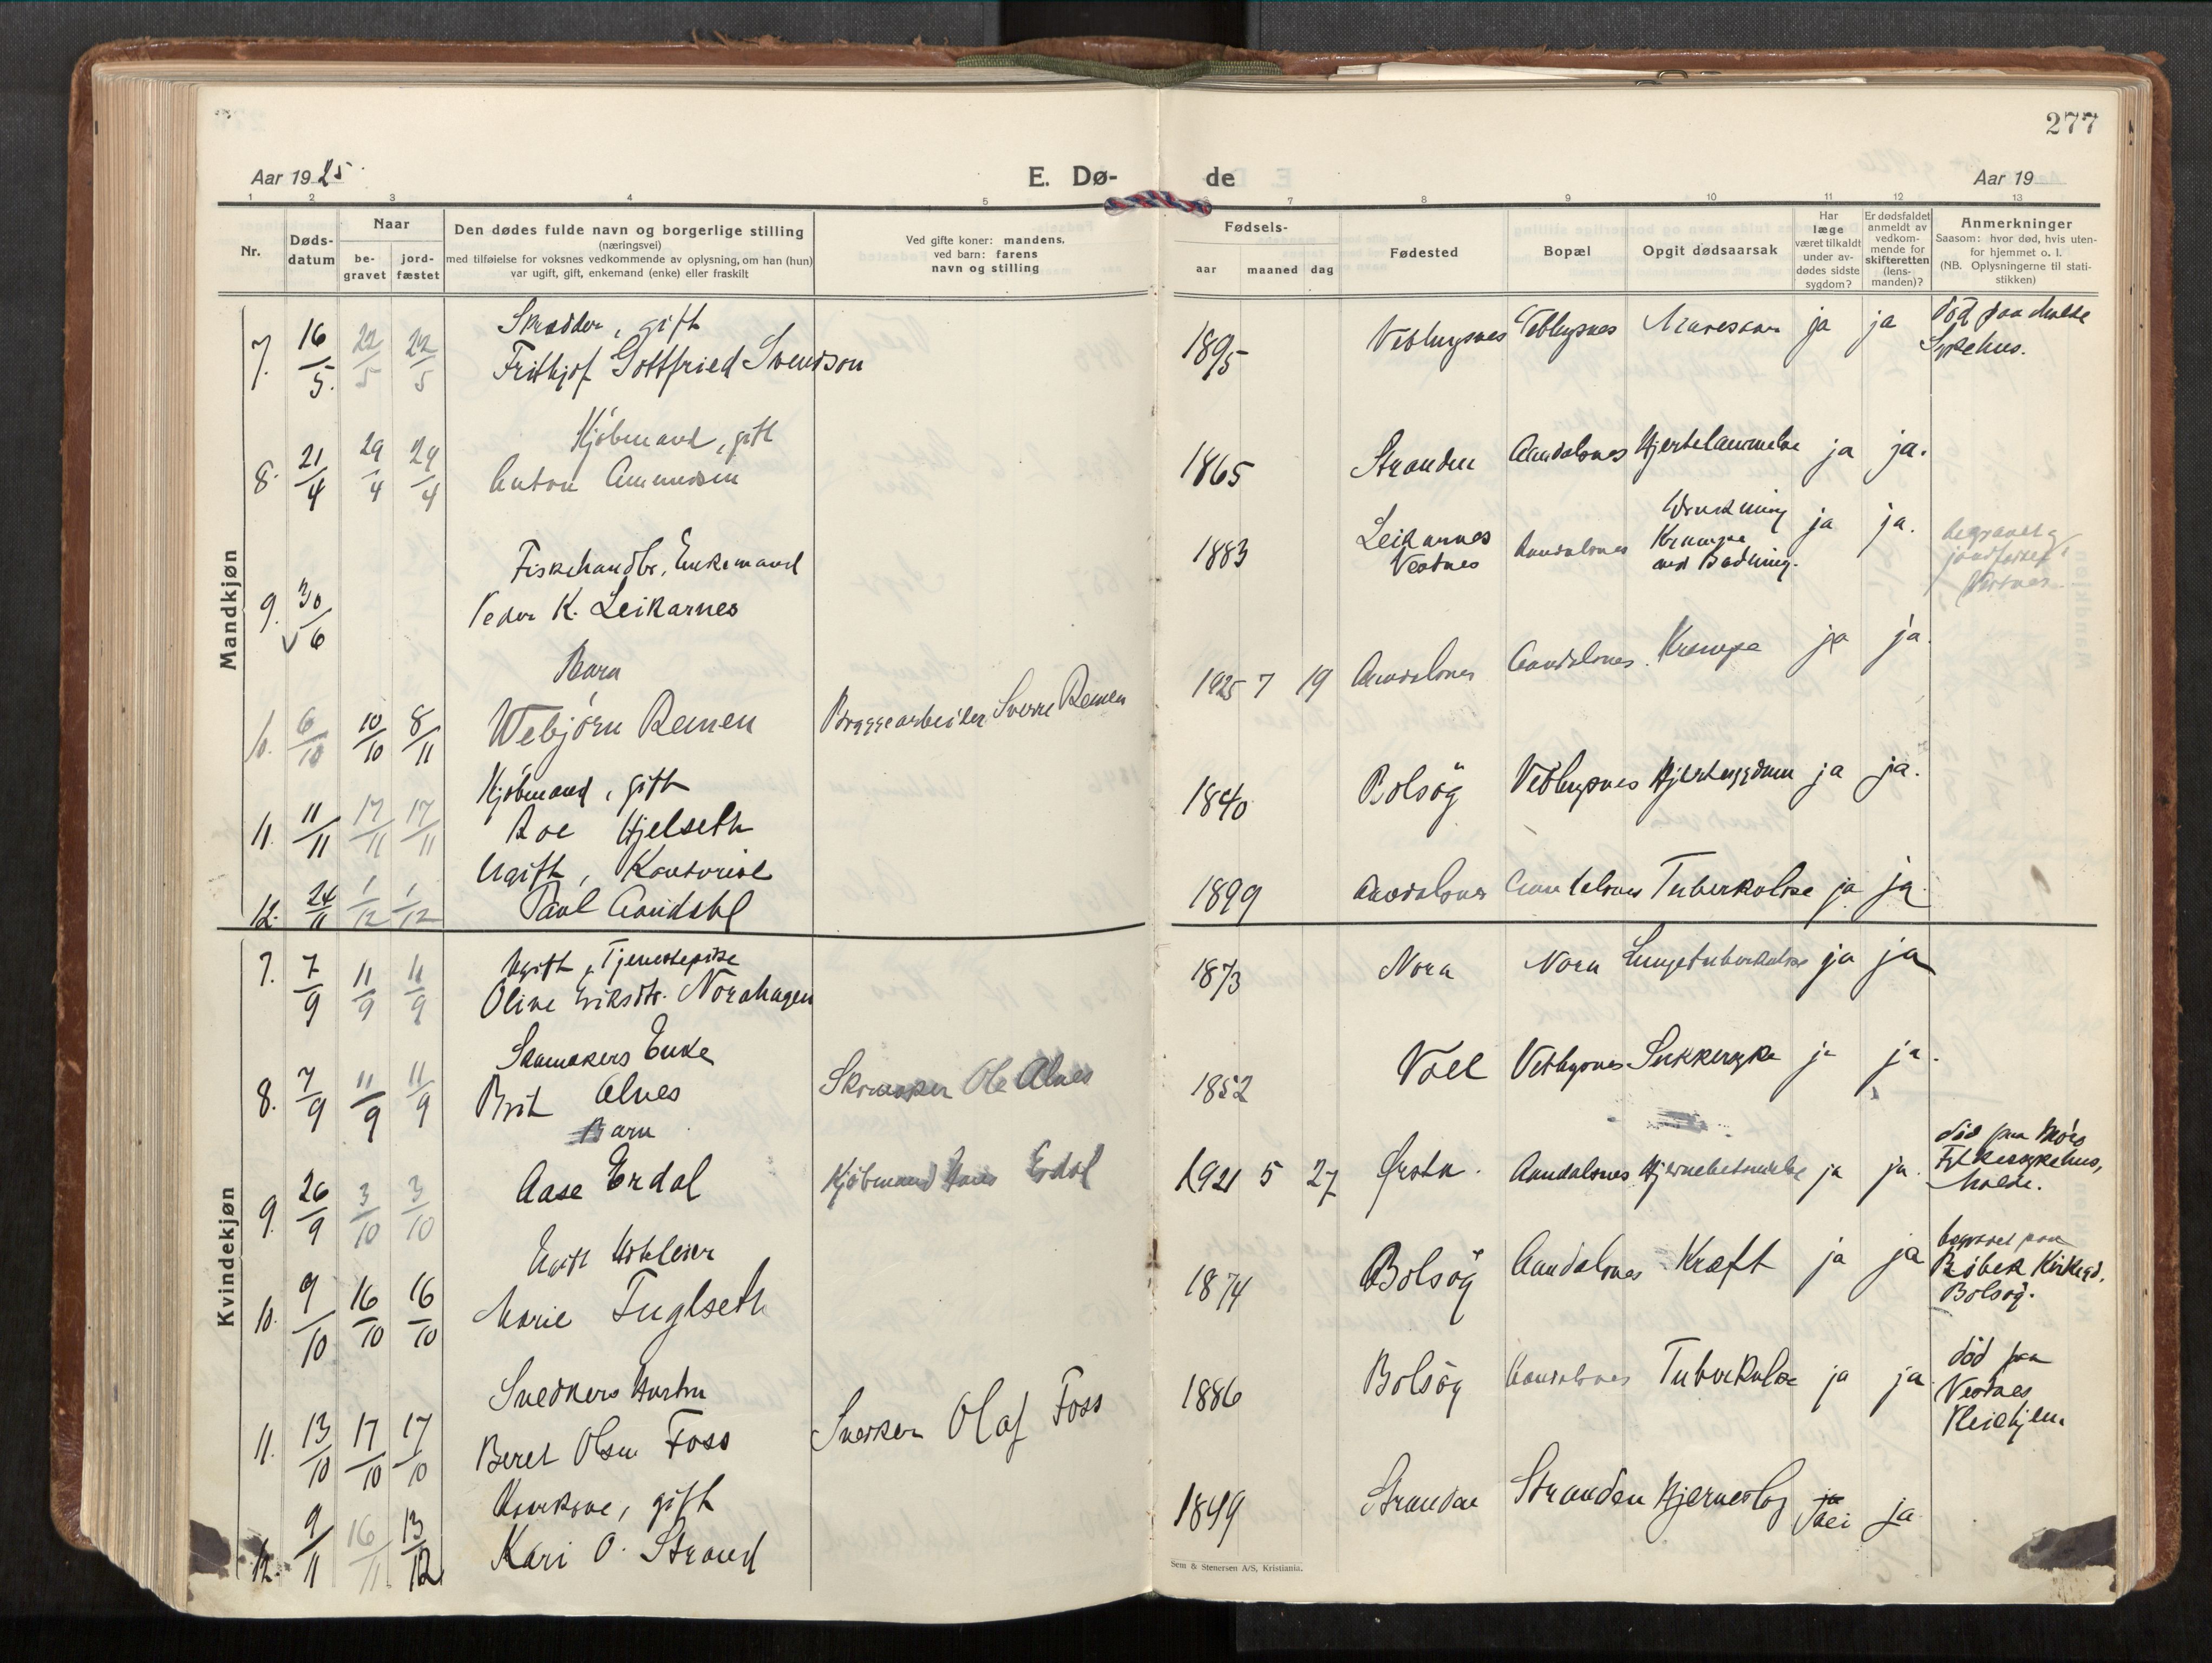 277
Aar 1925.
E. Dø-
de
Aar 19
1 2 3 4 5 6 7 8 9 10 11 12 13
Nr.
Døds-
datum
Naar
be-
gravet
jord-
fæstet
Den dødes fulde navn og borgerlige stilling
(næringsvei)
med tilføielse for voksnes vedkommende av oplysning, om han (hun)
var ugift, gift, enkemand (enke) eller fraskilt
Ved gifte koner: mandens,
ved barn: farens
navn og stilling
Fødsels-
aar maaned dag
Fødested
Bopæl
Opgit dødsaarsak
Har
læge
været tilkaldt
under av-
dødes sidste
sygdom?
Er dødsfaldet
anmeldt av
vedkom-
mende for
skifteretten
(lens-
manden)?
Anmerkninger
Saasom: hvor død, hvis uten-
for hjemmet o. l.
(NB. Oplysningerne til stati-
stikken)
Mandkjøn
Skrædder, gift
7. 16/5. 22/5 22/5 Frithjof Gottfried Svendson 1895 Veblugsnes Veblugsnes ja ja død paa Molde
Sykehus.
Kjöbmand, gift
8. 21/4 29/4 29/4 Anton Amundsen 1865 Stranden Aandalsnes Hjertelammelse ja ja.
Fiskehandler, Enkemand
9. 30/6 Peder K. Leikarnes 1883 Leikarnes
Vestnes Aandalsnes Drukning
Krampe
ved Badning. ja ja. begravet og
jordfæstet i
Vestnes
Barn
10. 6/10 10/10 8/11 Webjörn Remen Bryggearbeider Sverre Remen 1925 7 19 Aandalsnes Aandalsnes Krampe ja ja.
Kjöbmand, gift
11. 11/11 17/11 17/11 Roe Hjelseth 1840 Bolsög Veblugsnes Hjertesygdom ja ja.
Ugift, Kontorist
12. 24/11 1/12 1/12 Paul Aandahl 1899 Aandalsnes Aandalsnes Tuberkulose ja ja.
Kvindekjøn
Ugift, Tjenestepike
7. 7/9 11/9 11/9 Oline Eriksdtr. Norahagen 1873 Nora Nora Lungetuberkulose ja ja
Skomakers Enke
8. 7/9 11/9 11/9 Brit Alnes Skomaker Ole Alnes 1852 Voll Veblugsnes Sukkersyke ja ja.
Barn
9. 26/9 3/10 3/10 Aase Erdal Kjöbmand Hans Erdal 1921 5 27 Ørsta. Aandalsnes Hjernebetændelse ja ja. död paa Möre
Fylkessykehus,
Molde.
Ugift
10. 9/10 16/10 16/10 Marie Fuglseth 1874 Bolsög Aandalsnes Kræft ja ja begravet paa
Röbek Kirkegd.
Bolsög.
Snedkers Hustru
11. 13/10 17/10 17/10 Beret Olsen Foss Snedker Olaf Foss 1886 Bolsög Aandalsnes Tuberkulose ja ja död paa
Vestnes
Pleiehjem
Kaarkone, gift
12. 9/11 16/11 13/12 Kari O. Strand 1849 Stranden Stranden Hjerneslag ja
Nei ja
Sem & Stenersen A/S, Kristiania.